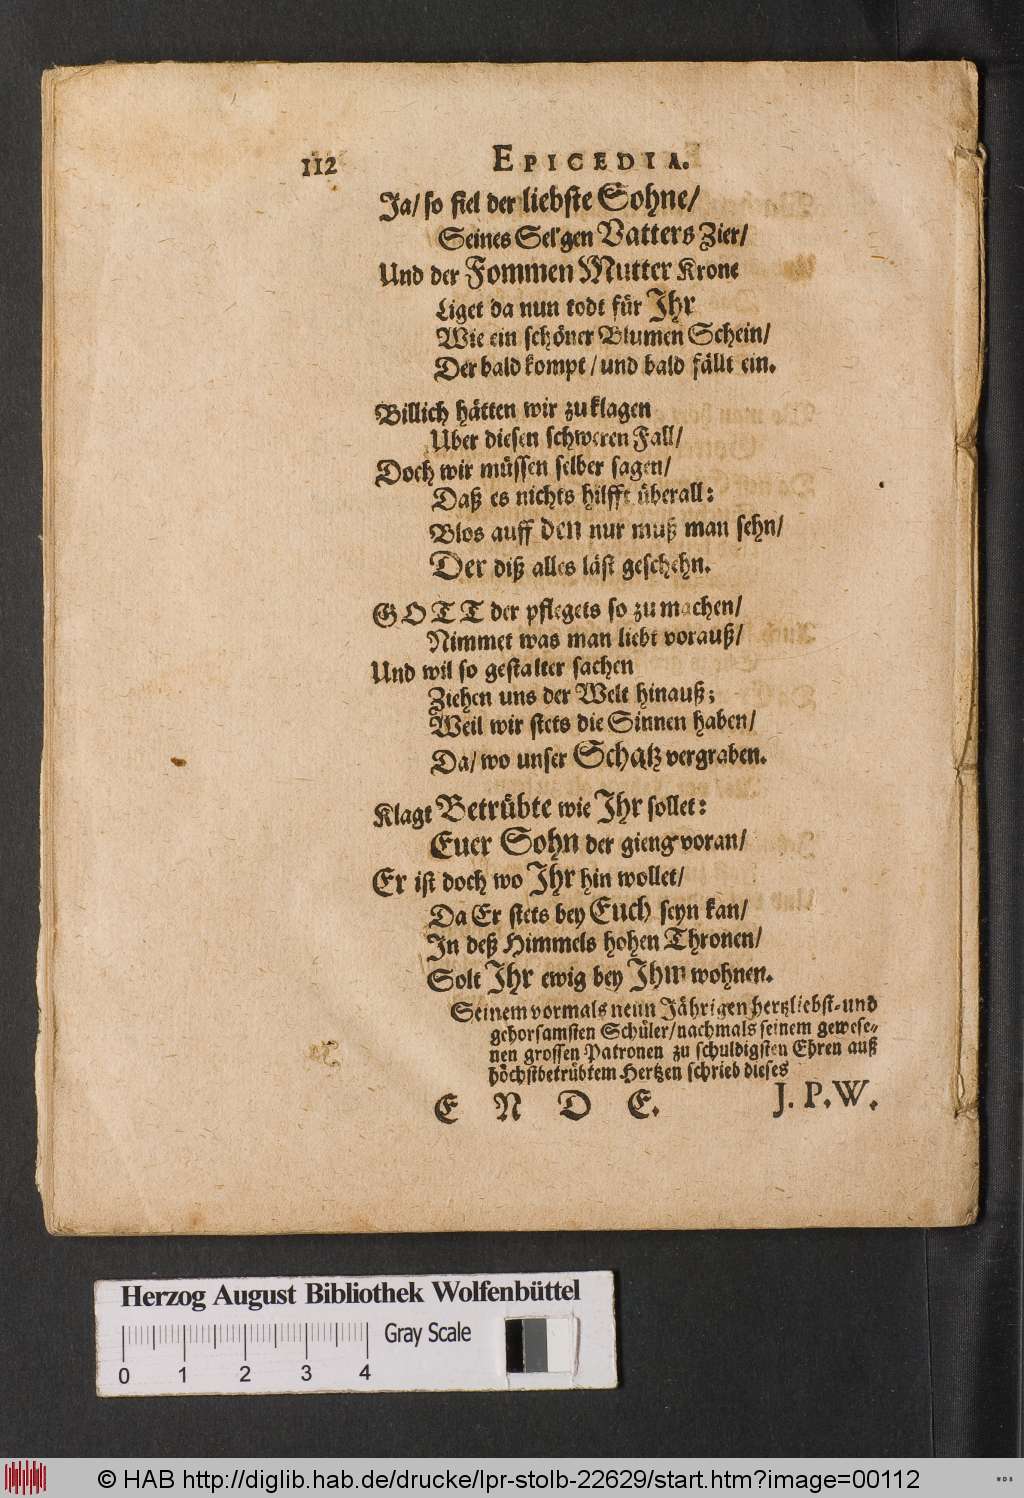 112 EPICEDIA.
Ja/ so fiel der liebste Sohne/
Seines Sel'gen Vatters Zier/
Und der Fommen Mutter Krone
Liget da nun todt für Ihr
Wie ein schöner Blumen Schein/
Der bald kompt/ und bald fällt ein.
Billich hätten wir zu klagen
Uber diesen schweren Fall/
Doch wir müssen selber sagen/
Daß es nichts hilfft überall:
Blos auff den nur muß man sehn/
Der diß alles läst geschehn.
GOTT der pflegets so zu machen/
Nimmet was man liebt vorauß/
Und wil so gestalter sachen
Ziehen uns der Welt hinauß;
Weil wir stets die Sinnen haben/
Da/ wo unser Schatz vergraben.
Klagt Betrübte wie Ihr sollet:
Euer Sohn der gieng voran/
Er ist doch wo Ihr hin wollet/
Da Er stets bey Euch seyn kan/
In deß Himmels hohen Thronen/
Solt Ihr ewig bey Ihm wohnen.
Seinem vormals neun Jährigen hertzliebst- und
gehorsamsten Schüler/ nachmals seinem gewese-
nen grossen Patronen zu schuldigsten Ehren auß
höchstbetrübtem Hertzen schrieb dieses
E N D E. J. P. W.
Herzog August Bibliothek Wolfenbüttel
Gray Scale
0 1 2 3 4
© HAB http://diglib.hab.de/drucke/lpr-stolb-22629/start.htm?image=00112
WDB